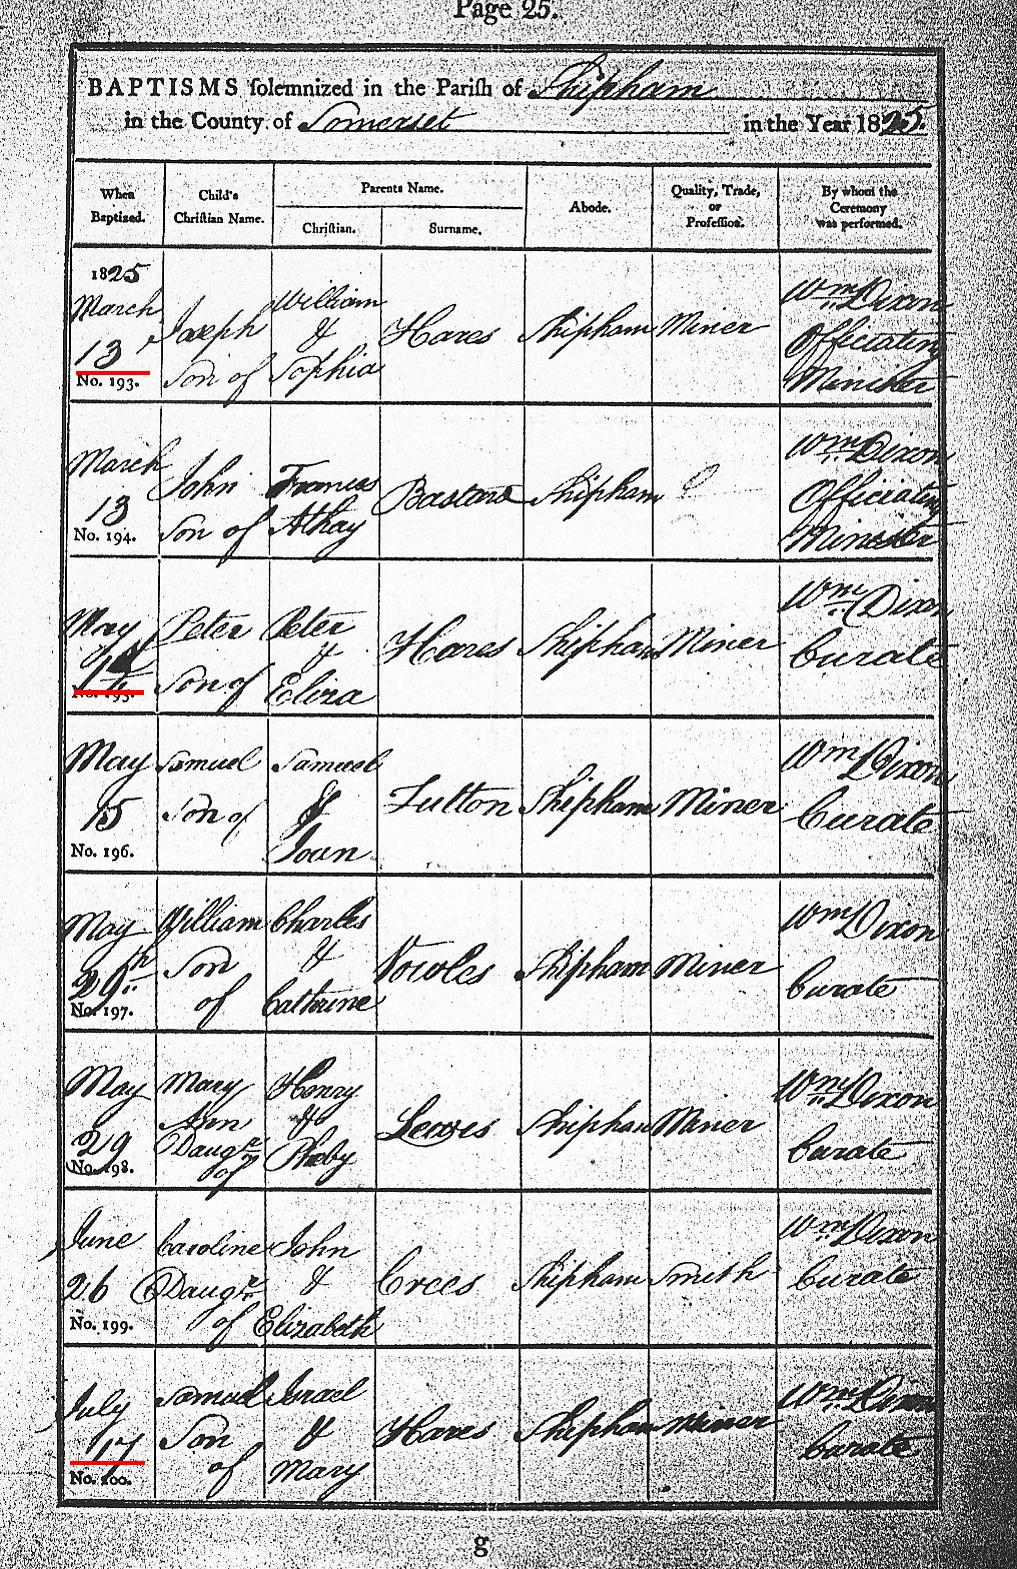 Page 25.
BAPTISMS solemnized in the Parish of Shipham
in the County of Somerset in the Year 1825.
When Baptized. Child's Christian Name. Parents Name. Abode. Quality, Trade, or Profession. By whom the Ceremony was performed.
Christian. Surname.
1825
March 13 Joseph Son of William & Sophia Hares Shipham Miner Wm Dixon Officiating Minister
No. 193.
March 13 John Son of Francis Athay Shipham Wm Dixon Officiating Minister
No. 194.
May Peter Son of Peter & Eliza Hares Shipham Miner Wm Dixon Curate
No. 195.
May 15 Samuel Son of Samuel & Joan Shipham Miner Wm Dixon Curate
No. 196.
May 29th William Son of Charles & Cathrine Vowles Shipham Miner Wm Dixon Curate
No. 197.
May 29 Mary Ann Daugr of Henry & Pheby Shipham Miner Wm Dixon Curate
No. 198.
June 26 Caroline Daugr of John & Elizabeth Crees Shipham Smith Wm Dixon Curate
No. 199.
July 17 Samuel Son of Israel & Mary Hares Shipham Miner Wm Dixon Curate
No. 200.
g